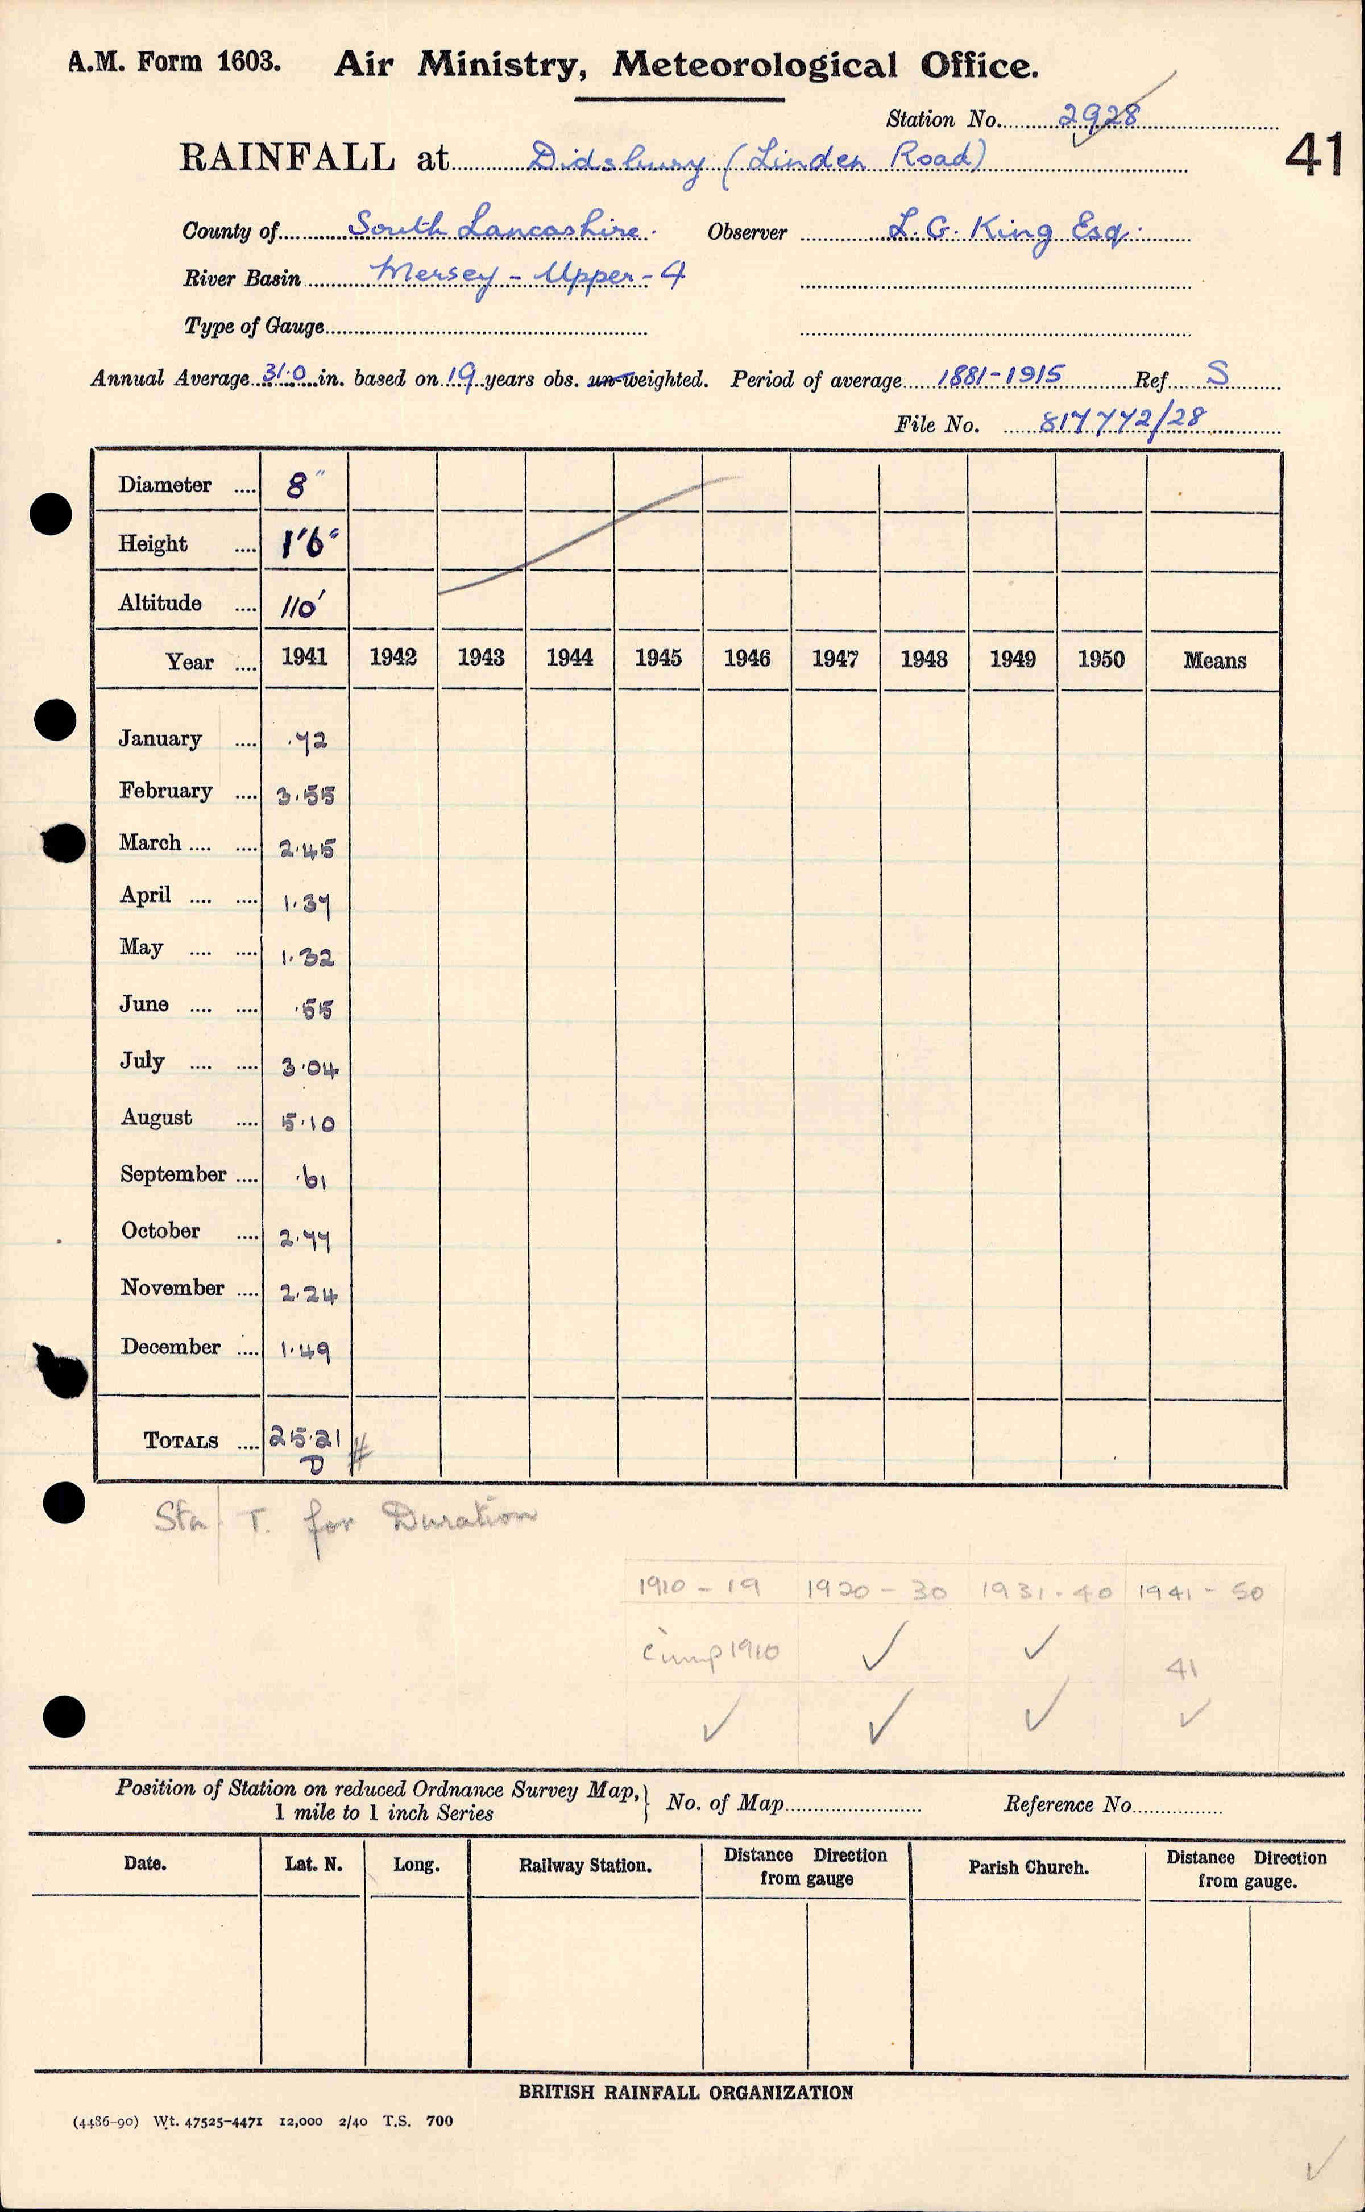 A.M. Form 1603. Air Ministry, Meteorological Office.
Station No. 2928
41
RAINFALL at Didsbury (Linden Road)
County of South Lancashire. Observer L.G. King Esq.
River Basin Mersey - Upper - 4
Type of Gauge
Annual Average 31.0 in. based on 19 years obs. un-weighted. Period of average 1881-1915 Ref S
File No. 817772/28
Diameter .... 8"
Height .... 1'6"
Altitude .... 110'
Year .... 1941 1942 1943 1944 1945 1946 1947 1948 1949 1950 Means
January .... .72
February .... 3.55
March .... .... 2.45
April .... .... 1.37
May .... .... 1.32
June .... .... .55
July .... .... 3.04
August .... 5.10
September .... .61
October .... 2.77
November .... 2.24
December .... 1.49
TOTALS .... 25.21 #
D
Sta T. for Duration
1910 - 19 1920 - 30 1931 - 40 1941 - 50
1910 ✓ ✓ 41
✓ ✓ ✓ ✓
Position of Station on reduced Ordnance Survey Map, 1 mile to 1 inch Series } No. of Map Reference No
Date. Lat. N. Long. Railway Station. Distance Direction from gauge Parish Church. Distance Direction from gauge.
BRITISH RAINFALL ORGANIZATION
(4486-90) Wt. 47525-4471 12,000 2/40 T.S. 700
✓